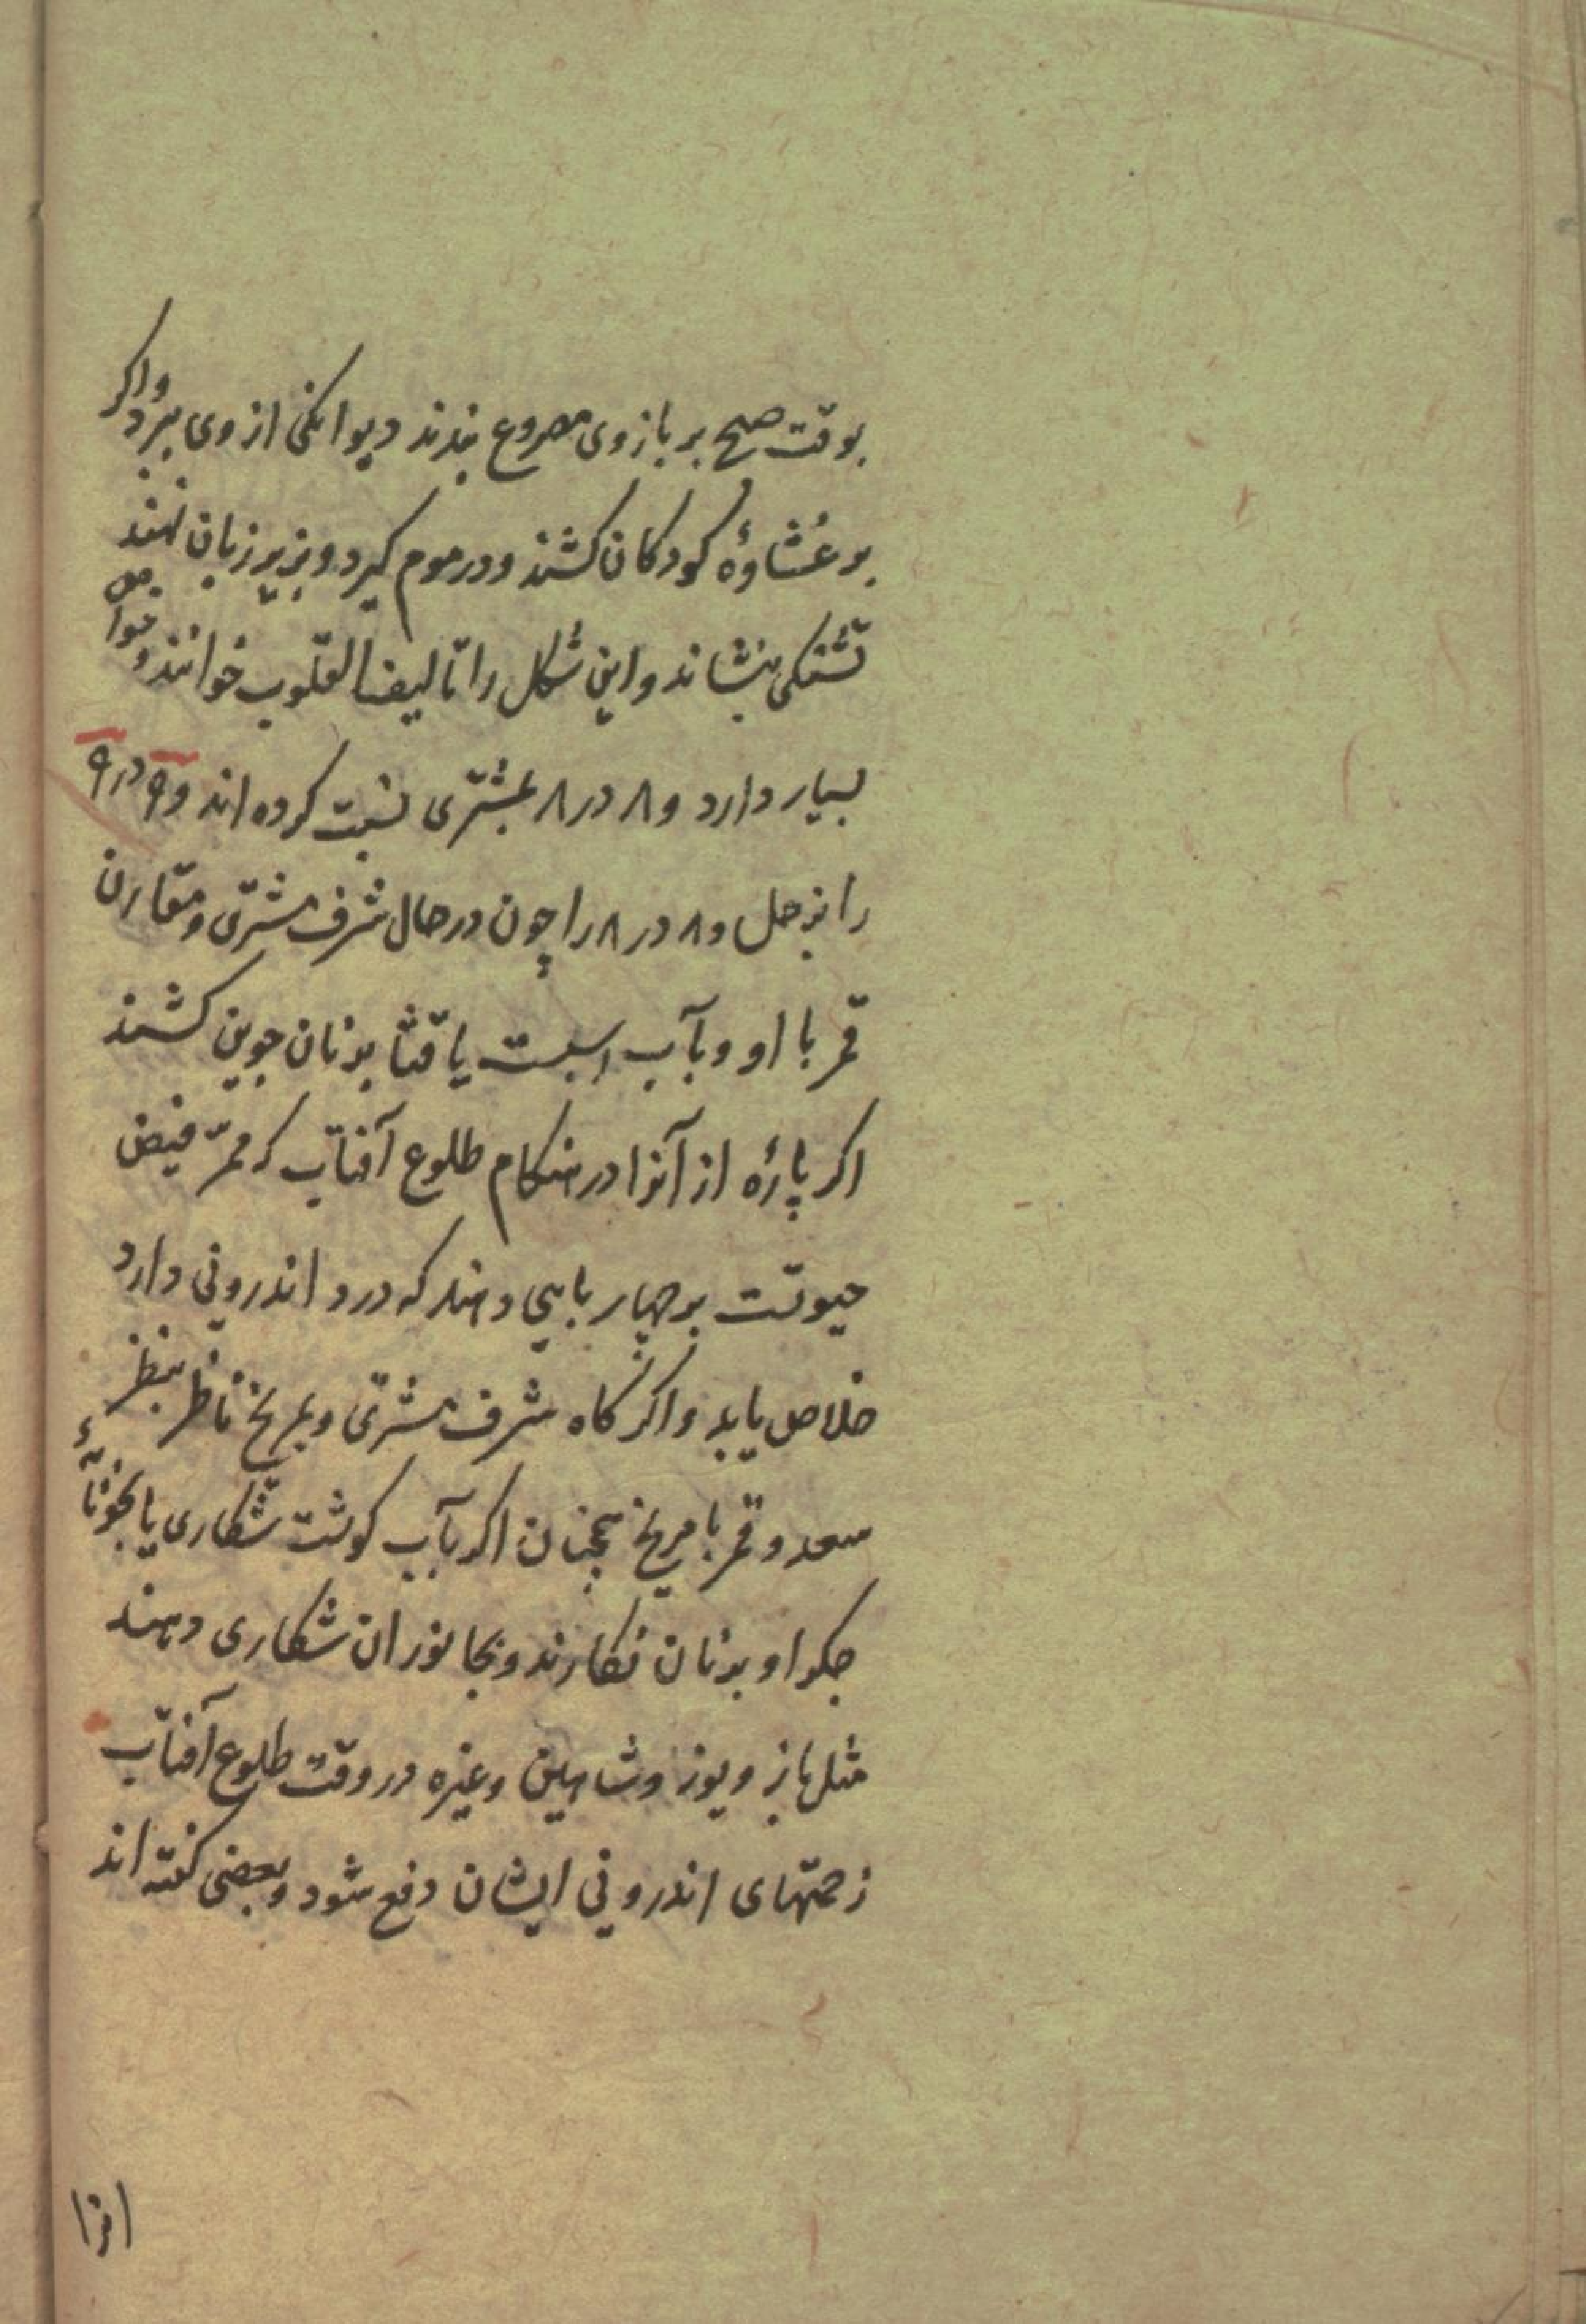 بوقت صبح بر بازوی مصروع بندند دیوانکی از وی ببرد واکر
بر غشاوهٔ کودکان کشند ودر موم کیرد وبزیر زبان نهند
تشنکی بنشاند واین شکل را تالیف القلوب خوانند وخواص
بسیار دارد و ۸ در ۸ بمشتری نسبت کرده اند و ۹ در ۹
را بزحل و ۸ در ۸ را چون در حال شرف مشتری ومقارن
قمر با او وبآب یا قثا بر نان جوین کشند
اکر پارهٔ از آنرا در هنکام طلوع آفتاب که ممرّ فیض
حیوتست بر چهار بایی دهند که درد اندرونی دارد
خلاص یابد واکر کاه شرف مشتری وبمریخ ناظر بنظر
سعد وقمر با مریخ همچنان اکر بآب کوشت شکاری یا بخونابهٔ
جکر او بر نان نکارند وبجانوران شکاری دهند
مثل باز ویوز وشاهین وغیره در وقت طلوع آفتاب
زحمتهای اندرونی ایشان دفع شود وبعضی کفته اند
انرا